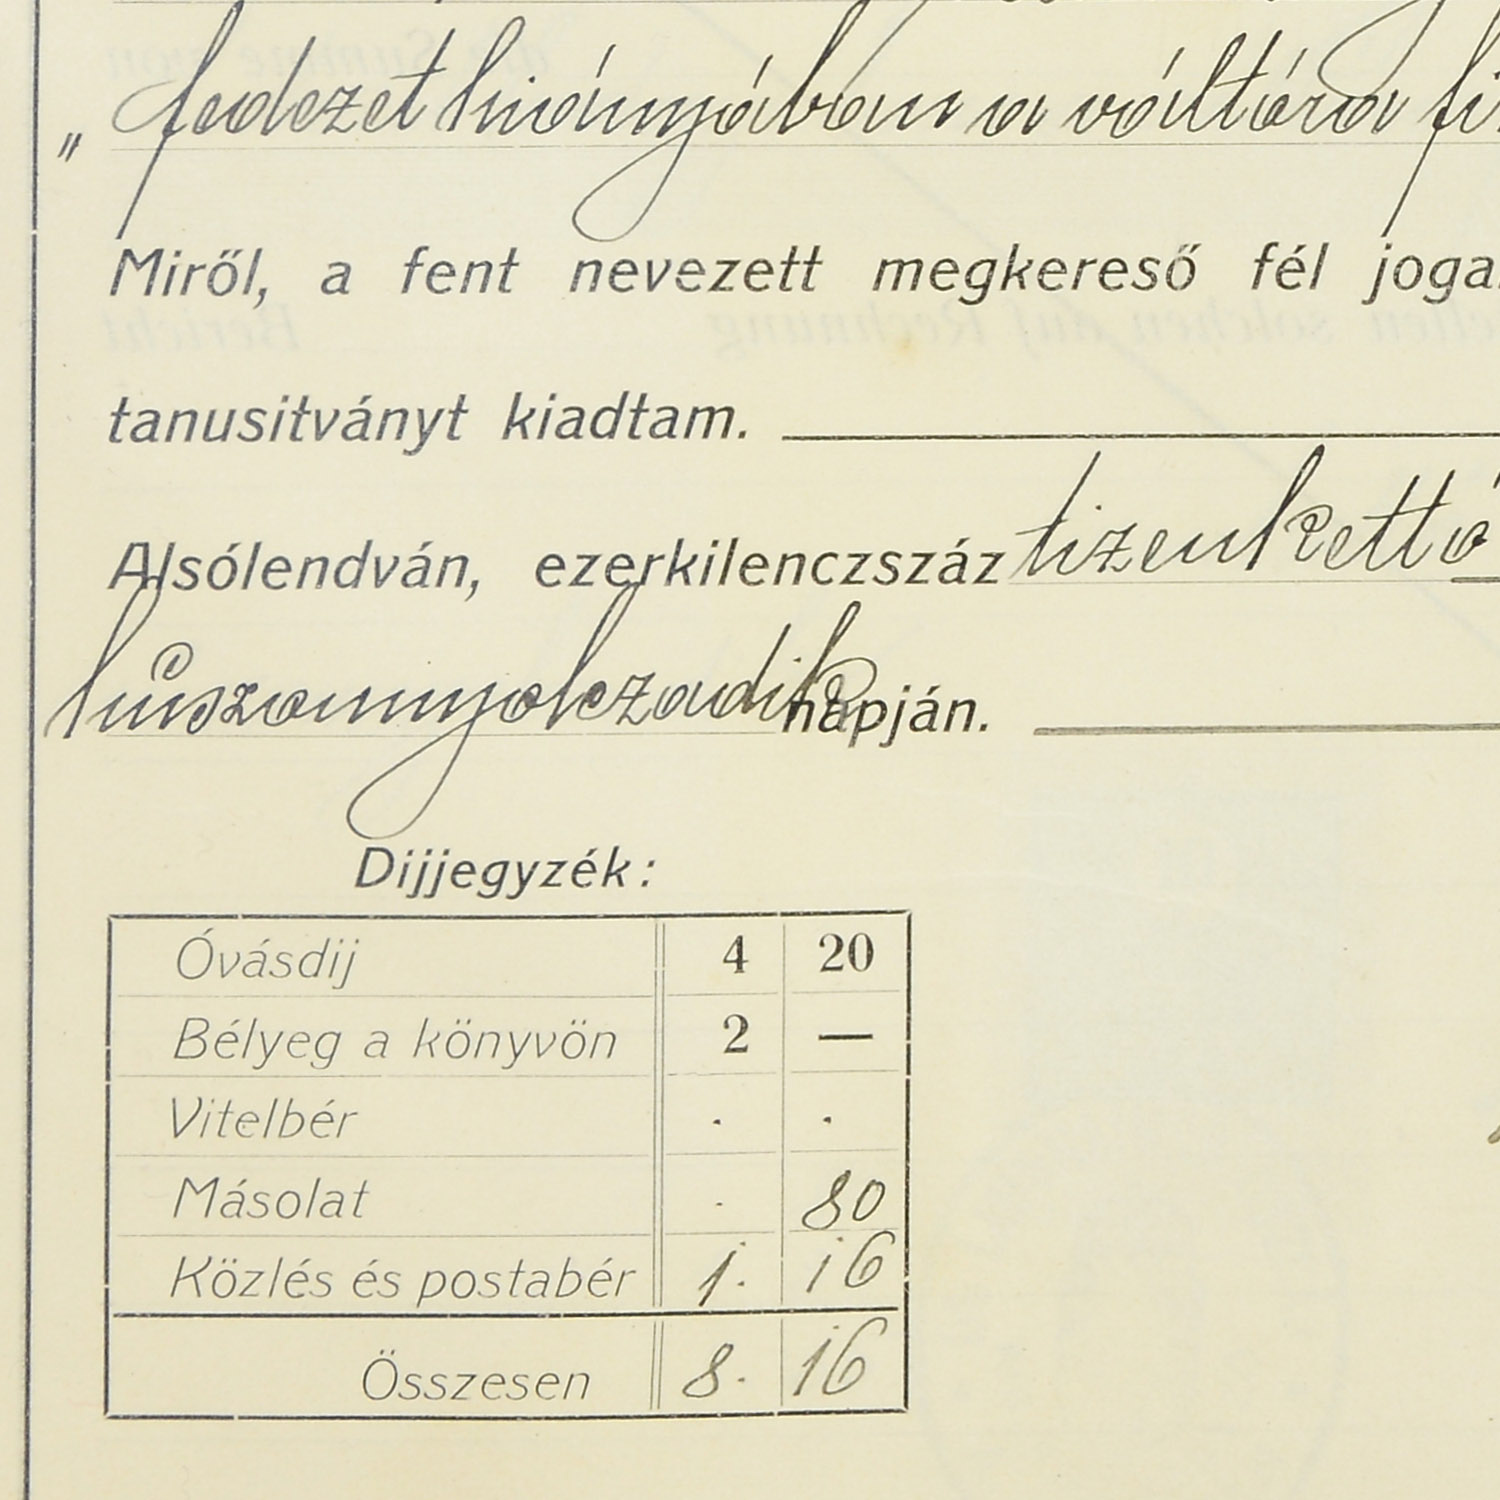 „ fedezet hiányában a váltóra fi
Miről, a fent nevezett megkereső fél joga
tanusitványt kiadtam.
Alsólendván, ezerkilenczszáz tizenkettő
húszonnyolczadik napján.
Dijjegyzék:
Óvásdij 4 20
Bélyeg a könyvön 2 —
Vitelbér . .
Másolat . 80
Közlés és postabér 1. 16
Összesen 8. 16